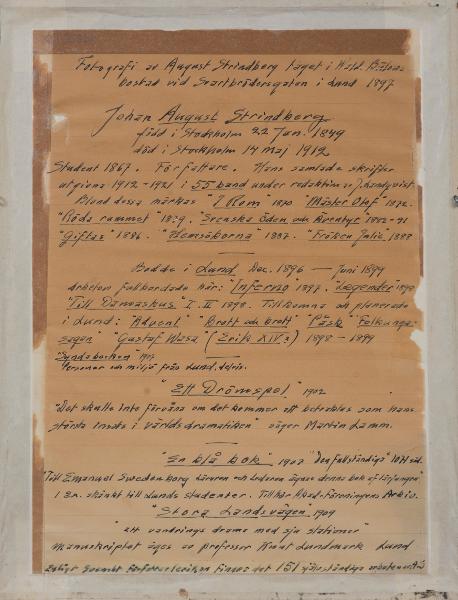 Fotografi av August Strindberg taget i
bostad vid Svartbrödersgatan i Lund 1897
Johan August Strindberg
född i Stockholm 22 Jan. 1849
död i Stockholm 14 Maj 1912
Student 1867. Författare. Hans samlade skrifter
utgivna 1912-1921 i 55 band under redaktion av J. Landqvist
Bland dessa märkas "I Rom" 1870 "Mäster Olof" 1872.
"Röda rummet" 1879. "Svenska Öden och Äventyr" 1882-91
"Giftas" 1886. "Hemsöborna" 1887. "Fröken Julie" 1888
Bodde i Lund Dec. 1896 — Juni 1899
Arbeten fullbordade här: "Inferno" 1897. "Legender" 1898
"Till Damaskus" I. II 1898. Tillkomna och planerade
i Lund: "Advent" "Brott och brott" "Påsk" "Folkunga-
sagan" "Gustaf Wasa (Erik XIV) 1898 - 1899
"Syndabocken" 1907
Personer och miljö från Lund
"Ett Drömspel" 1902
"Det skulle inte förvåna om det kommer att betraktas som hans
största insats i världsdramatiken" säger Martin Lamm.
"En blå bok" 1907 "den fullständiga" sid.
"Till Emanuel Swedenborg läraren och ledaren ägnas denna bok af lärjungen"
1 Ex. skänkt till Lunds studenter. Tillhör Akad. Föreningens Arkiv.
"Stora Landsvägen" 1909
"ett vandrings drama med sju stationer"
Manuskriptet äges av professor Knut Lundmark Lund
Enligt Svenskt Författarlexikon finnes det 151 självständiga arbeten av